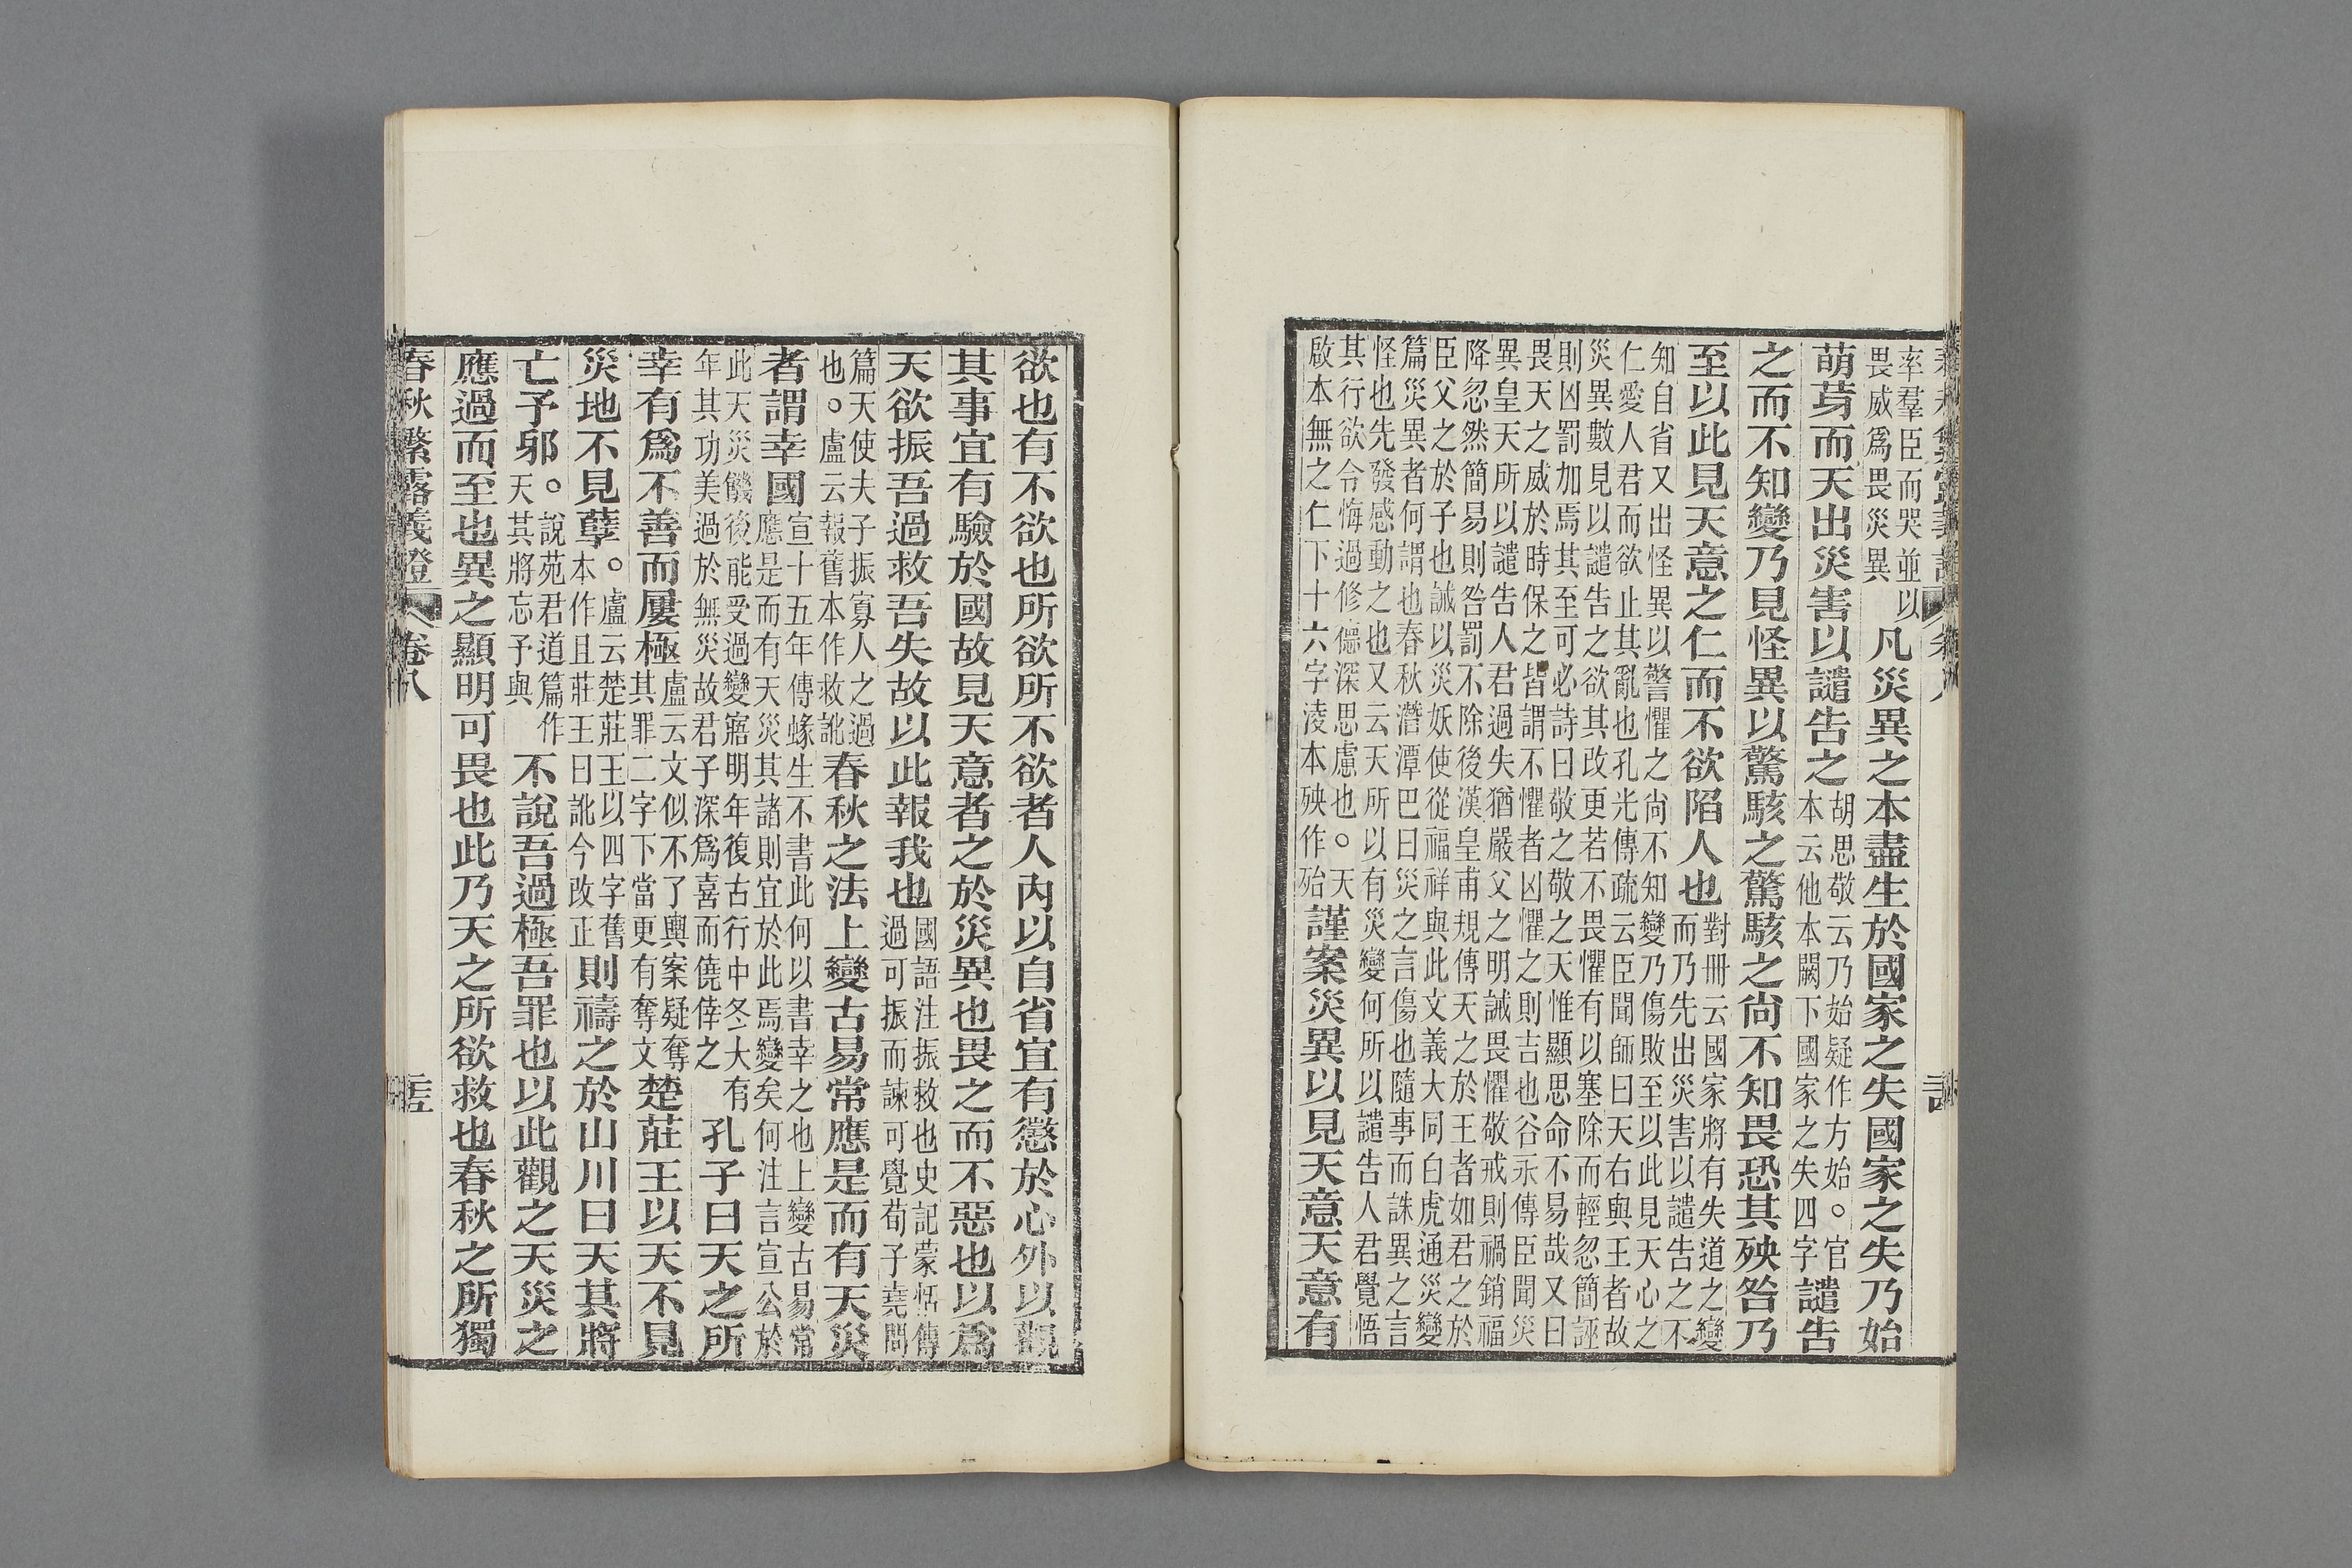 率羣臣而哭並以
畏威爲畏災異
凡災異之本盡生於國家之失國家之失乃始
萌芽而天出災害以譴告之
胡思敬云乃始疑作方始。官
本云他本闕下國家之失四字
譴告
之而不知變乃見怪異以驚駭之驚駭之尚不知畏恐其殃咎乃
至以此見天意之仁而不欲陷人也
對冊云國家將有失道之變
而乃先出災害以譴告之不
知自省又出怪異以警懼之尚不知變乃傷敗至以此見天心之
仁愛人君而欲止其亂也孔光傳疏云臣聞師曰天右與王者故
災異數見以譴告之欲其改更若不畏懼有以塞除而輕忽簡誣
則凶罰加焉其至可必詩曰敬之敬之天惟顯思命不易哉又曰
畏天之威於時保之皆謂不懼者凶懼之則吉也谷永傳臣聞災
異皇天所以譴告人君過失猶嚴父之明誡畏懼敬戒則禍銷福
降忽然簡易則咎罰不除後漢皇甫規傳天之於王者如君之於
臣父之於子也誡以災妖使從福祥與此文義大同白虎通災變
篇災異者何謂也春秋潛潭巴曰災之言傷也隨事而誅異之言
怪也先發感動之也又云天所以有災變何所以譴告人君覺悟
其行欲令悔過修德深思慮也。天
啟本無之仁下十六字淩本殃作殆
謹案災異以見天意天意有
欲也有不欲也所欲所不欲者人內以自省宜有懲於心外以觀
其事宜有驗於國故見天意者之於災異也畏之而不惡也以爲
天欲振吾過救吾失故以此報我也
國語注振救也史記蒙恬傳
過可振而諫可覺荀子堯問
篇天使夫子振寡人之過
也。盧云報舊本作救訛
春秋之法上變古易常應是而有天災
者謂幸國
宣十五年傳蝝生不書此何以書幸之也上變古易常
應是而有天災其諸則宜於此焉變矣何注言宣公於
此天災饑後能受過變寤明年復古行中冬大有
年其功美過於無災故君子深爲喜而僥倖之
孔子曰天之所
幸有爲不善而屢極
盧云文似不了輿案疑奪
其罪二字下當更有奪文
楚莊王以天不見
災地不見孽。
盧云楚莊王以四字舊
本作且莊王曰訛今改正
則禱之於山川曰天其將
亡予邪。
說苑君道篇作
天其將忘予與
不說吾過極吾罪也以此觀之天災之
應過而至也異之顯明可畏也此乃天之所欲救也春秋之所獨
春秋繁露義證 卷八